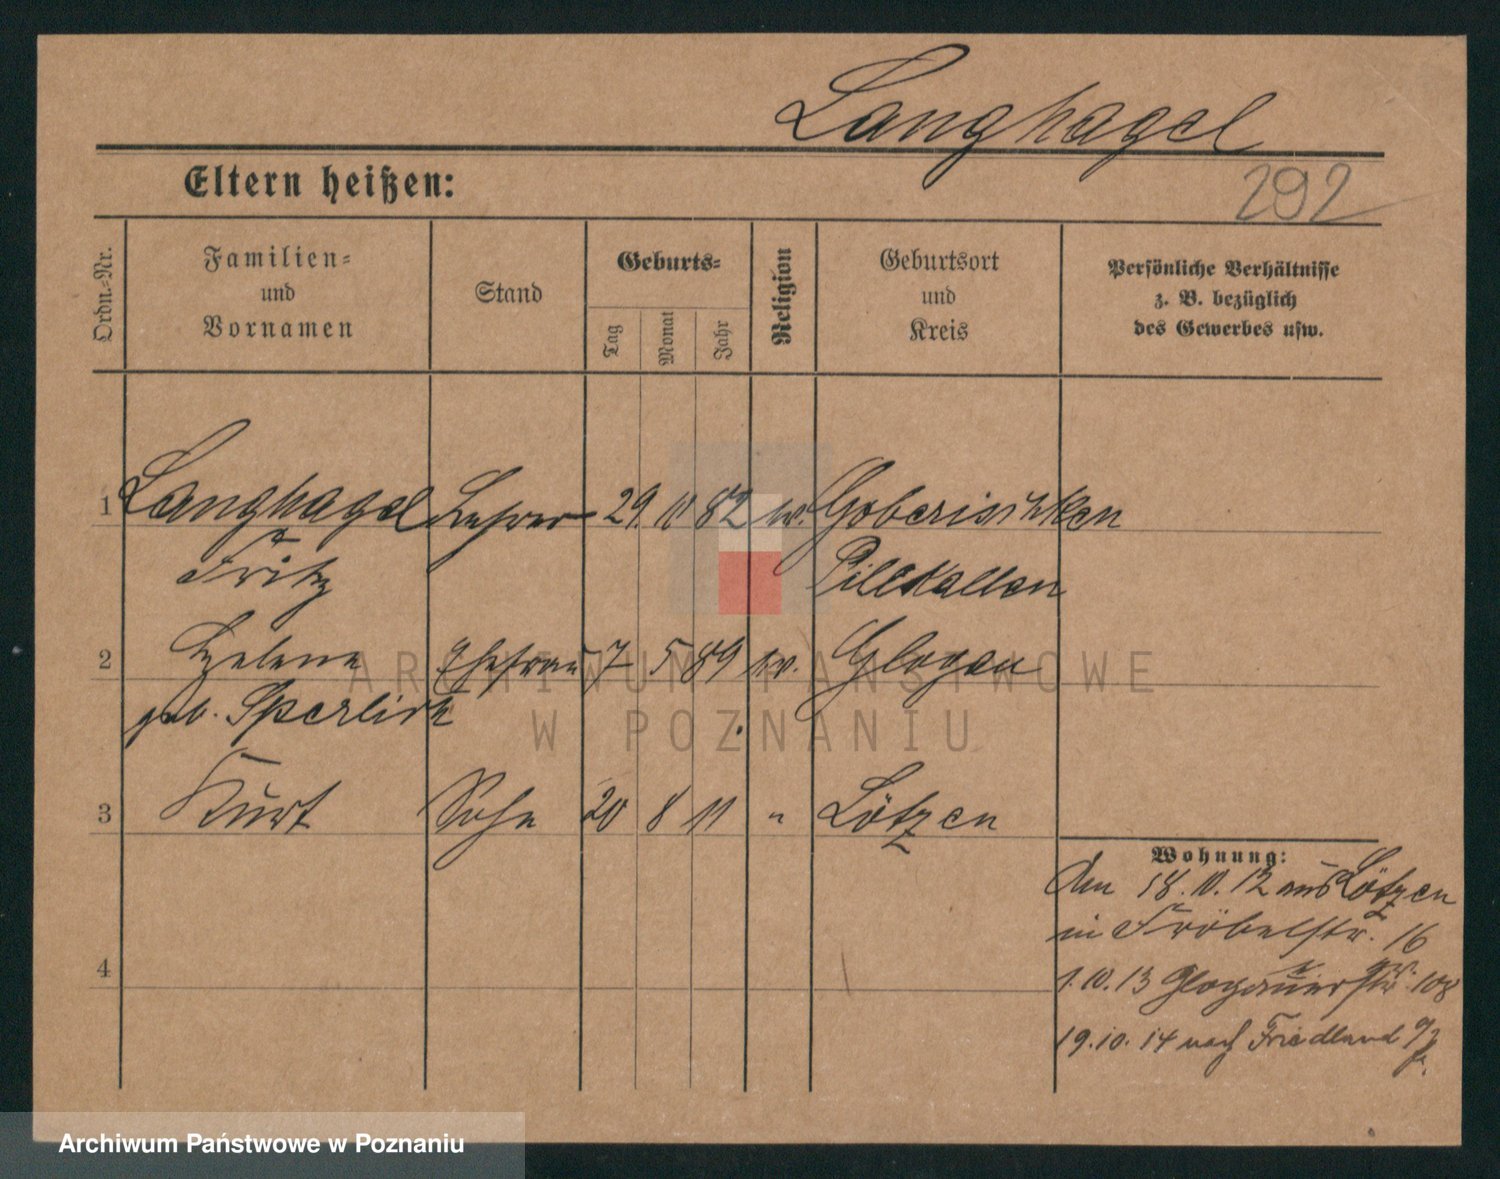 Langhagel
292
Eltern heißen:
Ordn.-Nr.
Familien-
und
Vornamen
Stand
Geburts-
Tag
Monat
Jahr
Religion
Geburtsort
und
Kreis
Persönliche Verhältnisse
z. B. bezüglich
des Gewerbes usw.
1 Langhagel Lehrer 29. 10 82 ev. Goberischken
Fritz Pillkallen
2 Helene Ehefrau 7 5 89 ev. Glogau
geb. Sperlich
3 Kurt Sohn 20 8 11 " Lötzen
4
Wohnung:
Am 18.10.12 aus Lötzen
in Fröbelstr. 16
1.10.13 Glogauerstr. 108
19.10.14 nach Friedland
ARCHIWUM PAŃSTWOWE
W POZNANIU
Archiwum Państwowe w Poznaniu